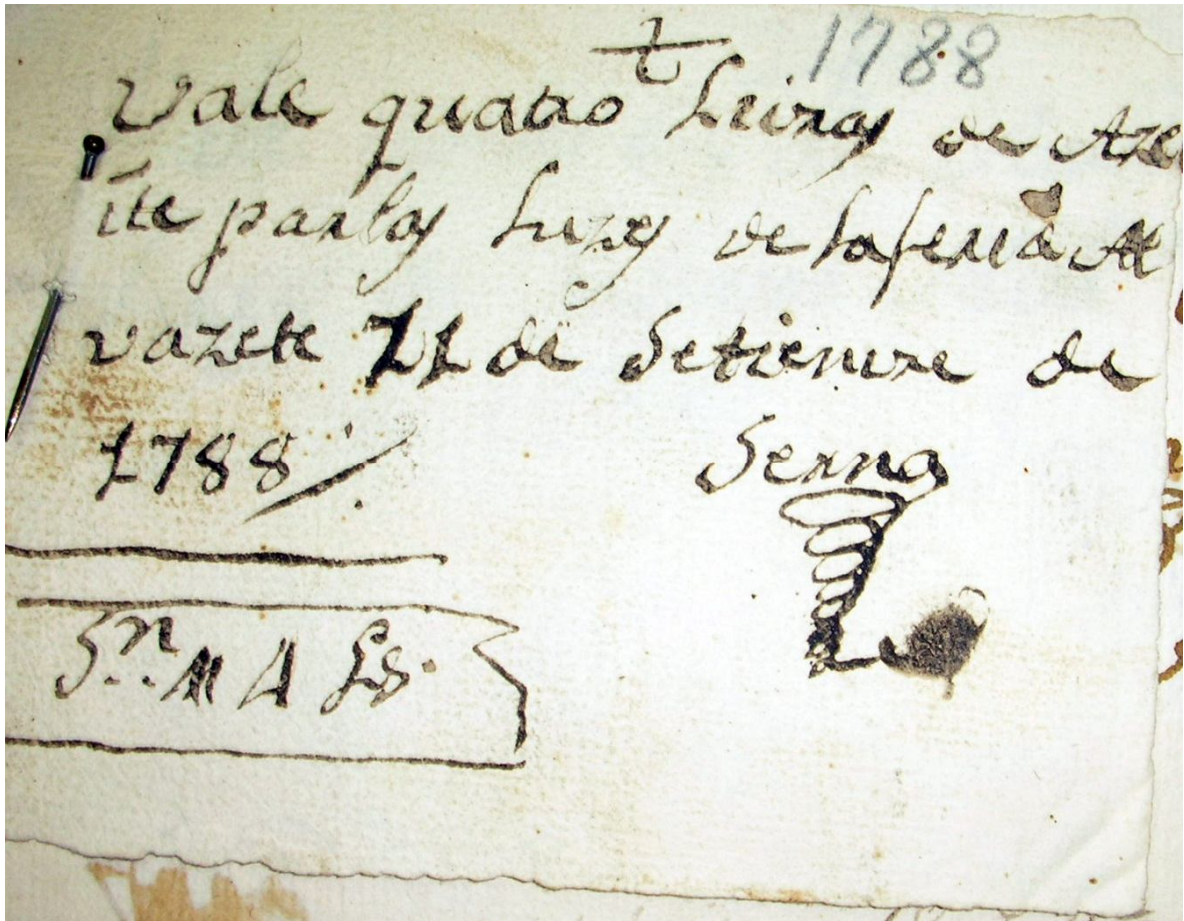 1788
Vale quatro Leivras de Aze
ite par las Luzes de la feria Al
vazete 11 de Setienvre de
1788
Serna
Sn. M A